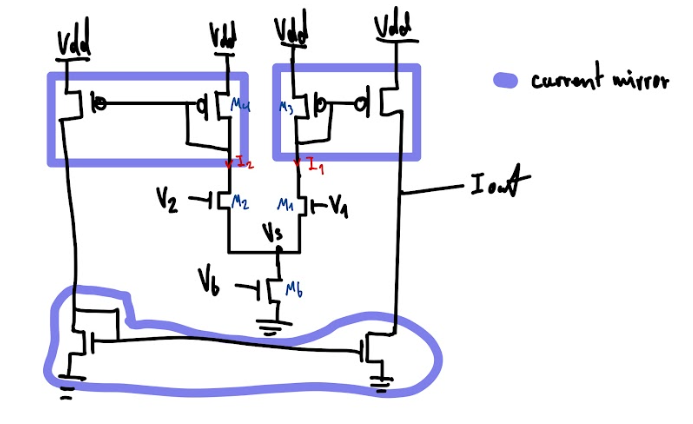 Vdd
Vdd
Vdd
Vdd
current mirror
M4
M3
I2
I1
Iout
V2
M2
M1
V1
Vs
Vb
Mb